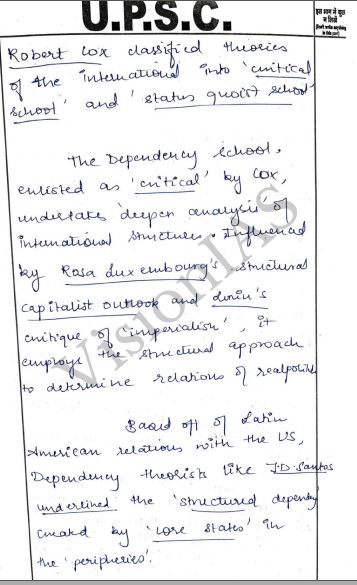 U.P.S.C.
इस भाग में कुछ
न लिखें
Robert Cox classified theories
of the international into 'critical
school' and 'status quoist school'
The Dependency school,
enlisted as 'critical' by Cox,
undertakes 'deeper analysis' of
international structures. Influenced
by Rosa Luxembourg's structural
capitalist outlook and Lenin's
critique of 'imperialism', it
employs the structural approach
to determine relations of realpolitik
Based off of Latin
American relations with the US,
Dependency theorists like J.D. Santos
underlined the 'structured dependency'
created by 'core states' in
the 'peripheries'.
VisionIAS